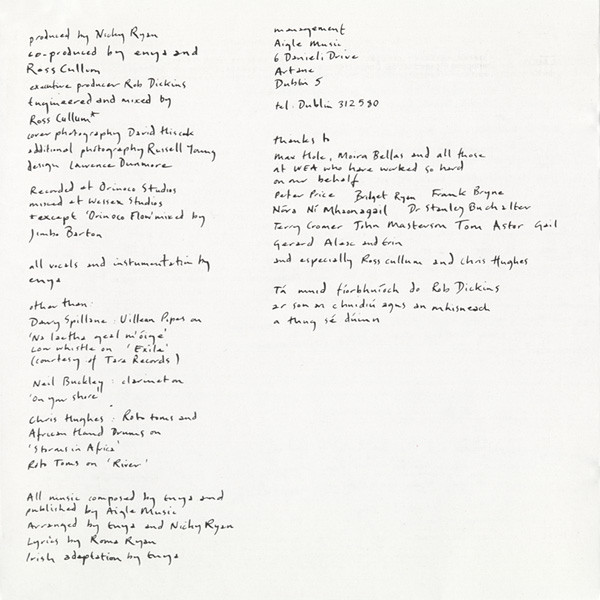 produced by Nicky Ryan
co-produced by enya and
Ross Cullum
executive producer Rob Dickins
Engineered and mixed by
Ross Cullum*
cover photography David Hiscock
additional photography Russell Young
design Lawrence Dunmore
Recorded at Orinoco Studios
mixed at Wessex Studios
*except 'Orinoco Flow' mixed by
Jimbo Barton
all vocals and instrumentation by
enya
other than:
Davy Spillane: Uillean Pipes on
'Na laetha geal m'óige'
Low whistle on 'Exile'
(courtesy of Tara Records)
Neil Buckley: clarinet on
'On your shore'
Chris Hughes: Roto toms and
African Hand Drums on
'Storms in Africa'
Roto Toms on 'River'
All music composed by enya and
published by Aigle Music
Arranged by enya and Nicky Ryan
Lyrics by Roma Ryan
Irish adaptation by enya
management
Aigle Music
6 Danieli Drive
Artane
Dublin 5
tel. Dublin 312580
thanks to
Max Hole, Moira Bellas and all those
at WEA who have worked so hard
on our behalf
Peter Price Bridget Ryan Frank Bryne
Nóra Ní Mhaonagail Dr Stanley Buchalter
Terry Cromer John Masterson Tom Astor Gail
Gerard Alasc and Erin
and especially Ross Cullum and Chris Hughes
Tá muid fíorbhuíoch do Rob Dickins
ar son an chuidiú agus an mhisneach
a thug sé dúinn